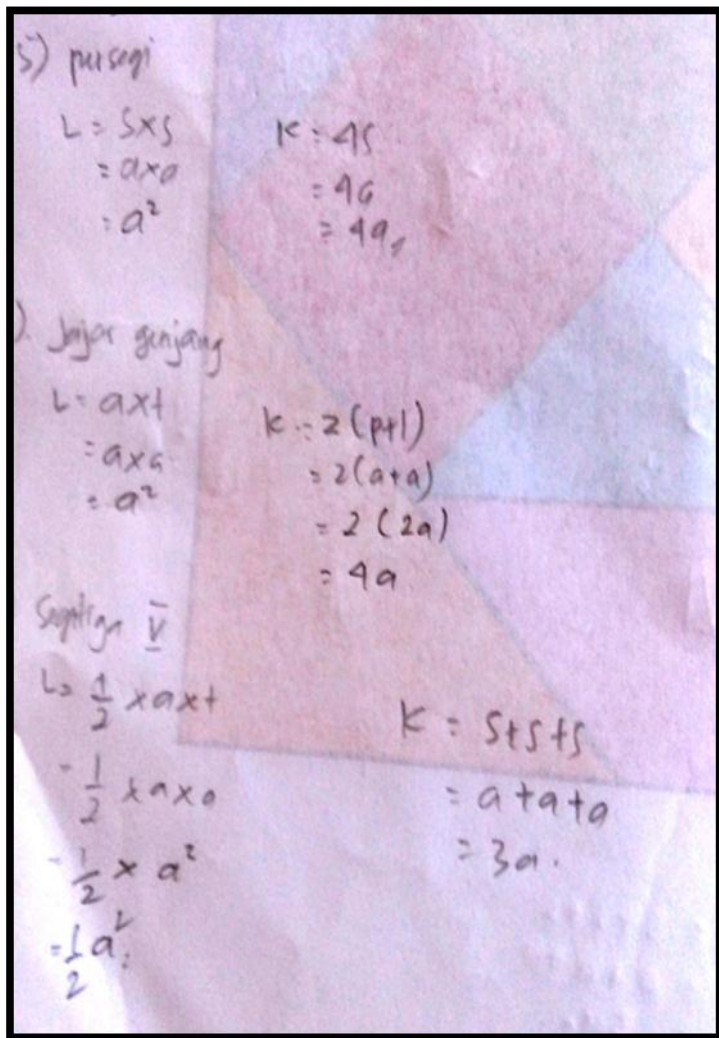 5) persegi
L = s x s
= a x a
= a²
K = 4s
= 4a
= 4a,,
). Jajar genjang
L = a x t
= a x a
= a²
K = 2 (p+l)
= 2 (a+a)
= 2 (2a)
= 4a
Segitiga V
L = 1/2 x a x t
= 1/2 x a x a
= 1/2 x a²
= 1/2 a²
K = s+s+s
= a+a+a
= 3a.